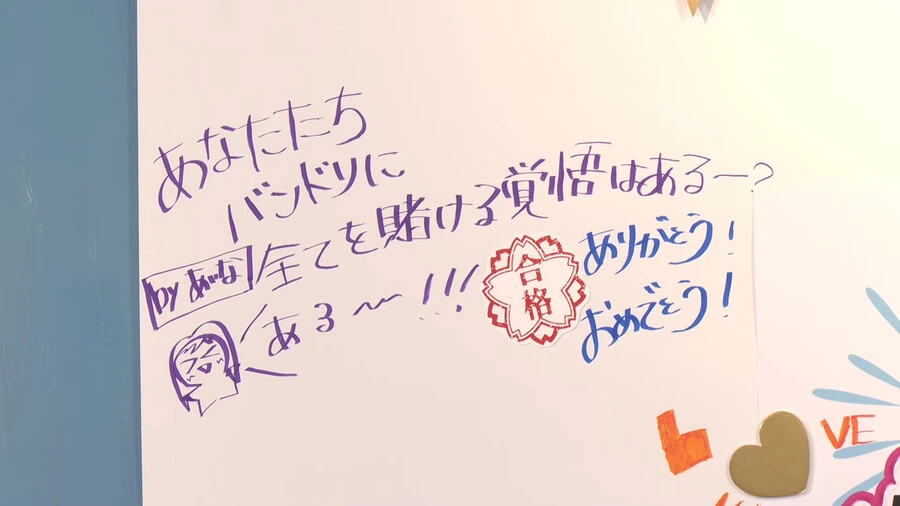 あなたたち
バンドリに
全てを賭ける覚悟はあるー?
by あがな
ある〜!!!
合格
ありがとう!
おめでとう!
L VE